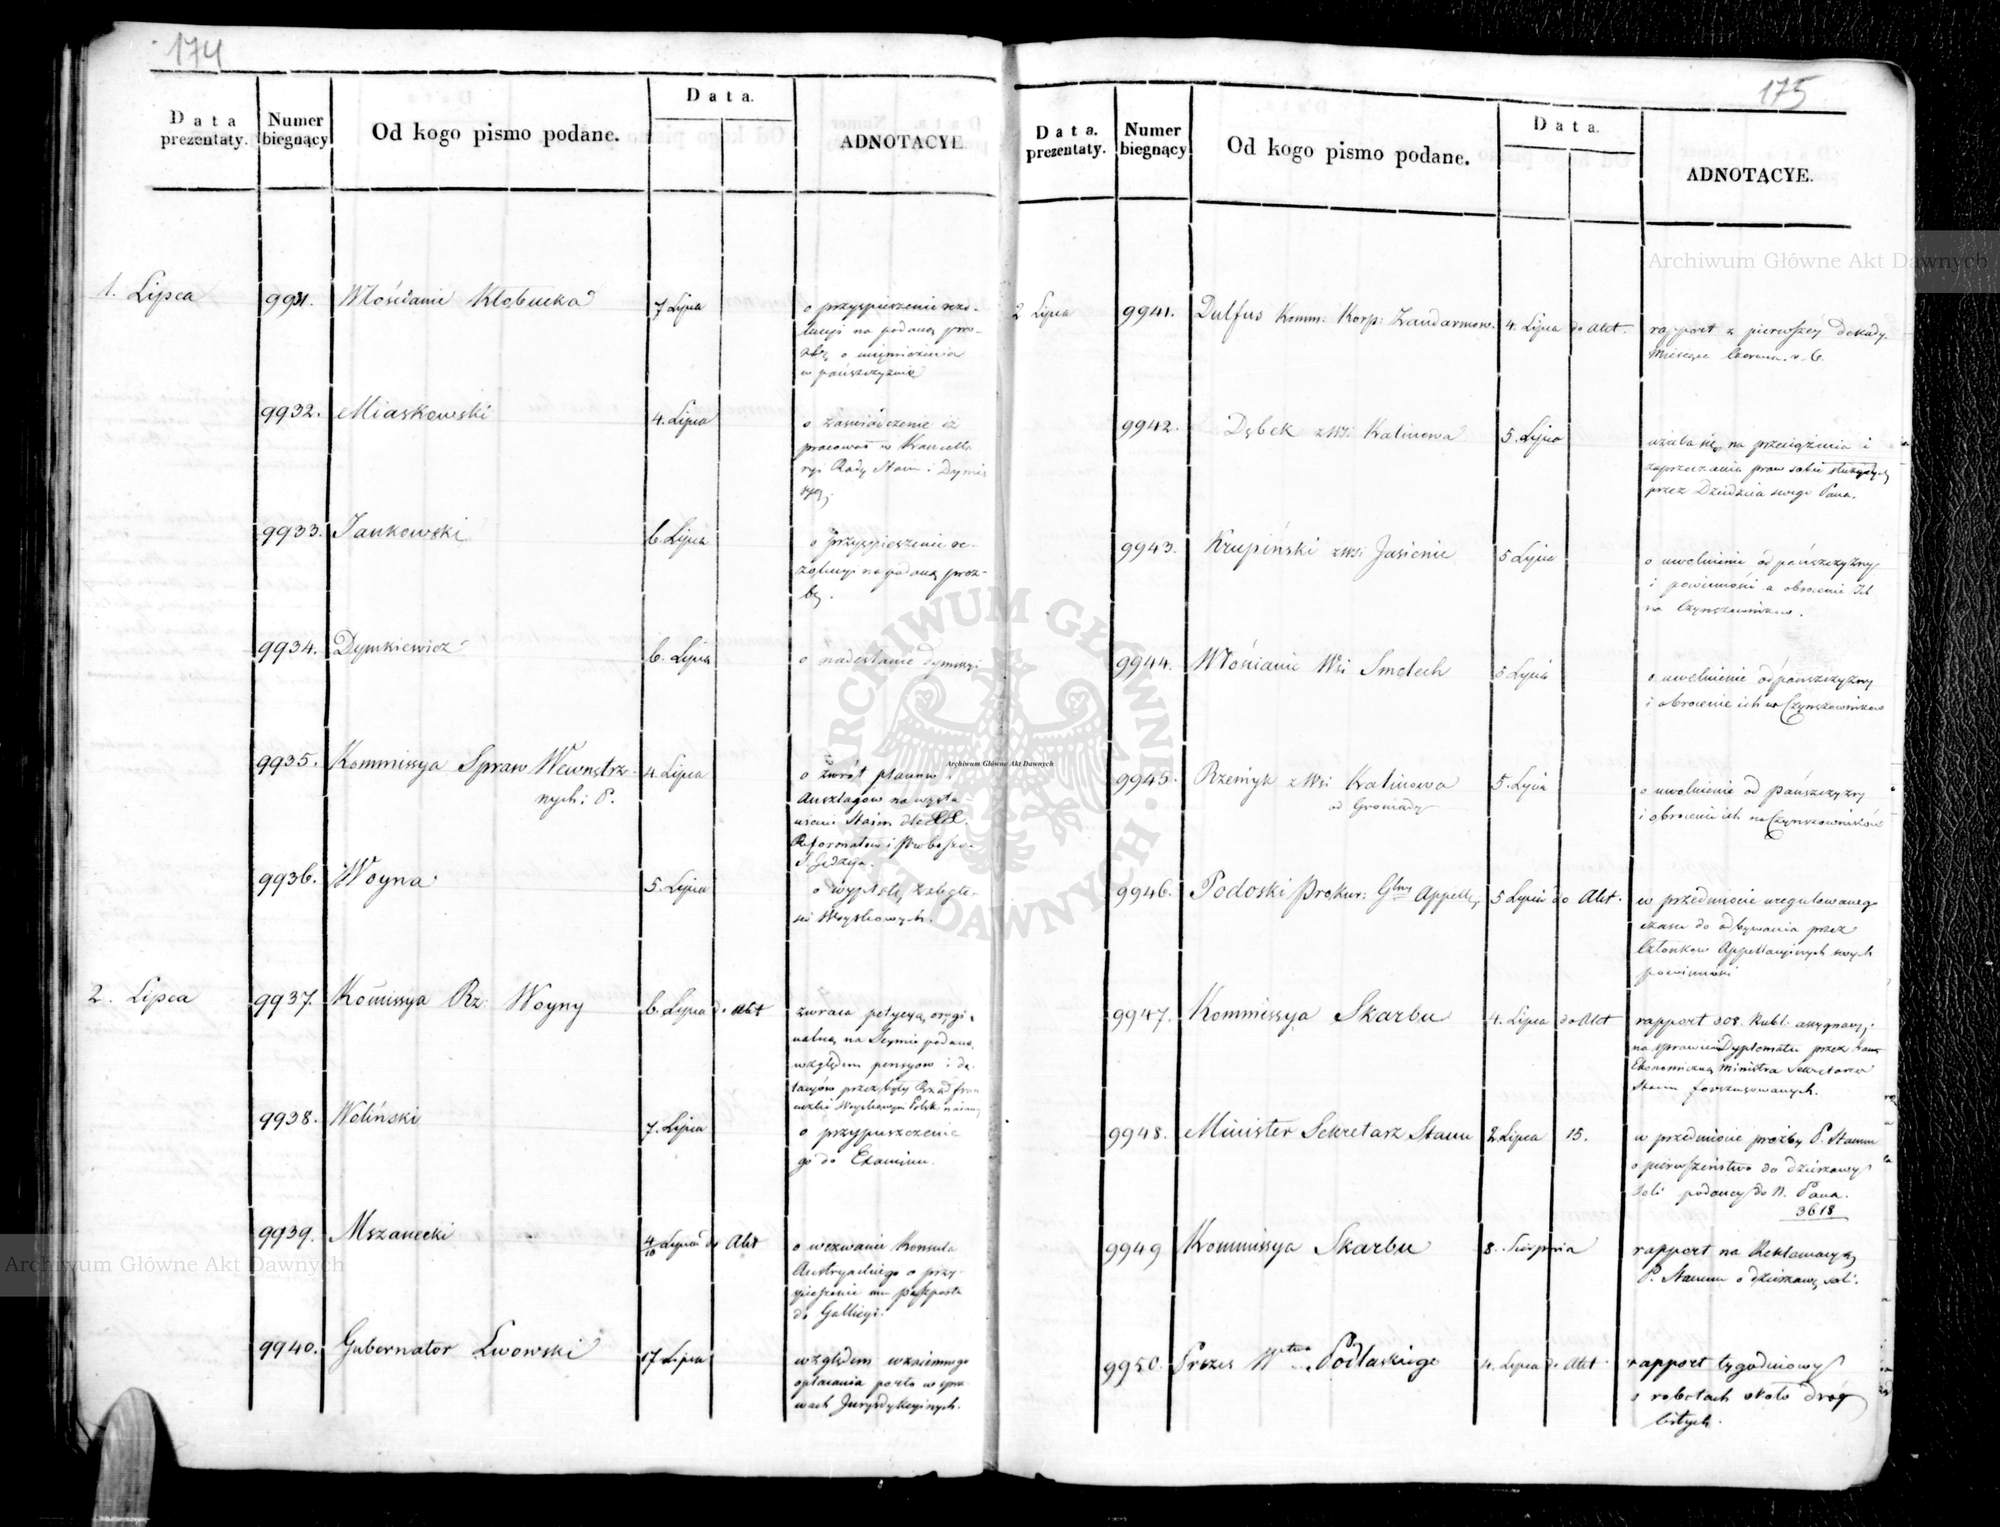 174
Data prezentaty.
Numer biegnący
Od kogo pismo podane.
Data.
ADNOTACYE
1. Lipca
9931. Włościanie Kłobucka
7 Lipca
o przyspieszenie rezo-
lucyi na podaną pro-
zbę o
w pańszczyznie
9932. Miaskowski
4. Lipca
o zaświadczenie iż
pracował w Kancella
ryi Rady Stanu i Dymis
syę.
9933. Jankowski
6 Lipca
o przyspieszenie re-
zolucyi na podaną proz-
bę.
9934. Dymkiewicz
6. Lipca
o nadesłanie dymissyi
9935. Kommissya Spraw Wewnętrz-
nych i P.
4 Lipca
o zwrót planów i
Anszlagów na wysta-
wienie Stajen dla
Reformatów i Probostwa
9936. Woyna
5. Lipca
o wypłatę zaległo-
ści Woyskowych.
2. Lipca
9937. Kommissya Rz: Woyny
6. Lipca do Akt
zwraca petycyą orygi-
nalną na Seymie podaną
względem pensyow i do-
tacyów przez były Rząd fran
cuzki Woyskowym Polski
9938. Woliński
7. Lipca
o przypuszczenie
go do Examinu.
9939. Mszanecki
4/10 Lipca do Akt
o wezwanie Konsula
Austryackiego o przy-
spieszenie mu paszportu
do Gallicyi.
9940. Gubernator Lwowski
17 Lipca
względem wzaiemnego
opłacania porto w spra-
wach Jurysdykcyinych.
175
Data. prezentaty.
Numer biegnący
Od kogo pismo podane.
Data.
ADNOTACYE.
2 Lipca
9941. Dulfus Komm: Korp: Żandarmow.
4. Lipca do Akt.
rapport z pierwszéy dekady
miesiąca Czerwca r. b.
9942. Dębek z Wsi Kalinowa
5. Lipca
użala się na przeciążenia i
zaprzeczania praw sobie służących
przez Dziedzica swego Pana.
9943. Krupiński z Wsi Jasienie
5 Lipca
o uwolnienie od pańszczyzny
i powinności a obrócenie Ich
na Czynszowników.
9944. Włościanie Wsi Smolech
5 Lipca
o uwolnienie od pańszczyzny
i obrócenie ich na Czynszowników
9945. Rzemyk z Wsi Kalinowa
od Gromady
5. Lipca
o uwolnienie od pańszczyzny
i obrócenie ich na Czynszowników
9946. Podoski Prokur: Głny Appell:
5 Lipca do Akt.
w przedmiocie uregulowanego
czasu do odbywania przez
Członków Appellacyinych swych
powinności
9947. Kommissya Skarbu
4. Lipca do Akt
rapport 308. Rubl. assygnacyi
na sprawienie Dyplomatu przez
Ekonomiczną Ministra Sekretarza
Stanu forszusowanych.
9948. Minister Sekretarz Stanu
2 Lipca 15.
w przedmiocie prośby P. Stamm
o pierwszeństwo do dzierżawy
Soli podaney do N. Pana.
3618
9949 Kommissya Skarbu
8. Sierpnia
rapport na Reklamacyą
P. Stamm o dzierżawę soli.
9950. Prezes Wztwa Podlaskiego
4. Lipca do Akt.
rapport tygodniowy
o robotach około dróg
bitych.
Archiwum Główne Akt Dawnych
Archiwum Główne Akt Dawnych
Archiwum Główne Akt Dawnych
ARCHIWUM GŁÓWNE AKT DAWNYCH